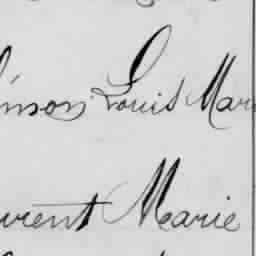 inson Louis Mar
urent Marie